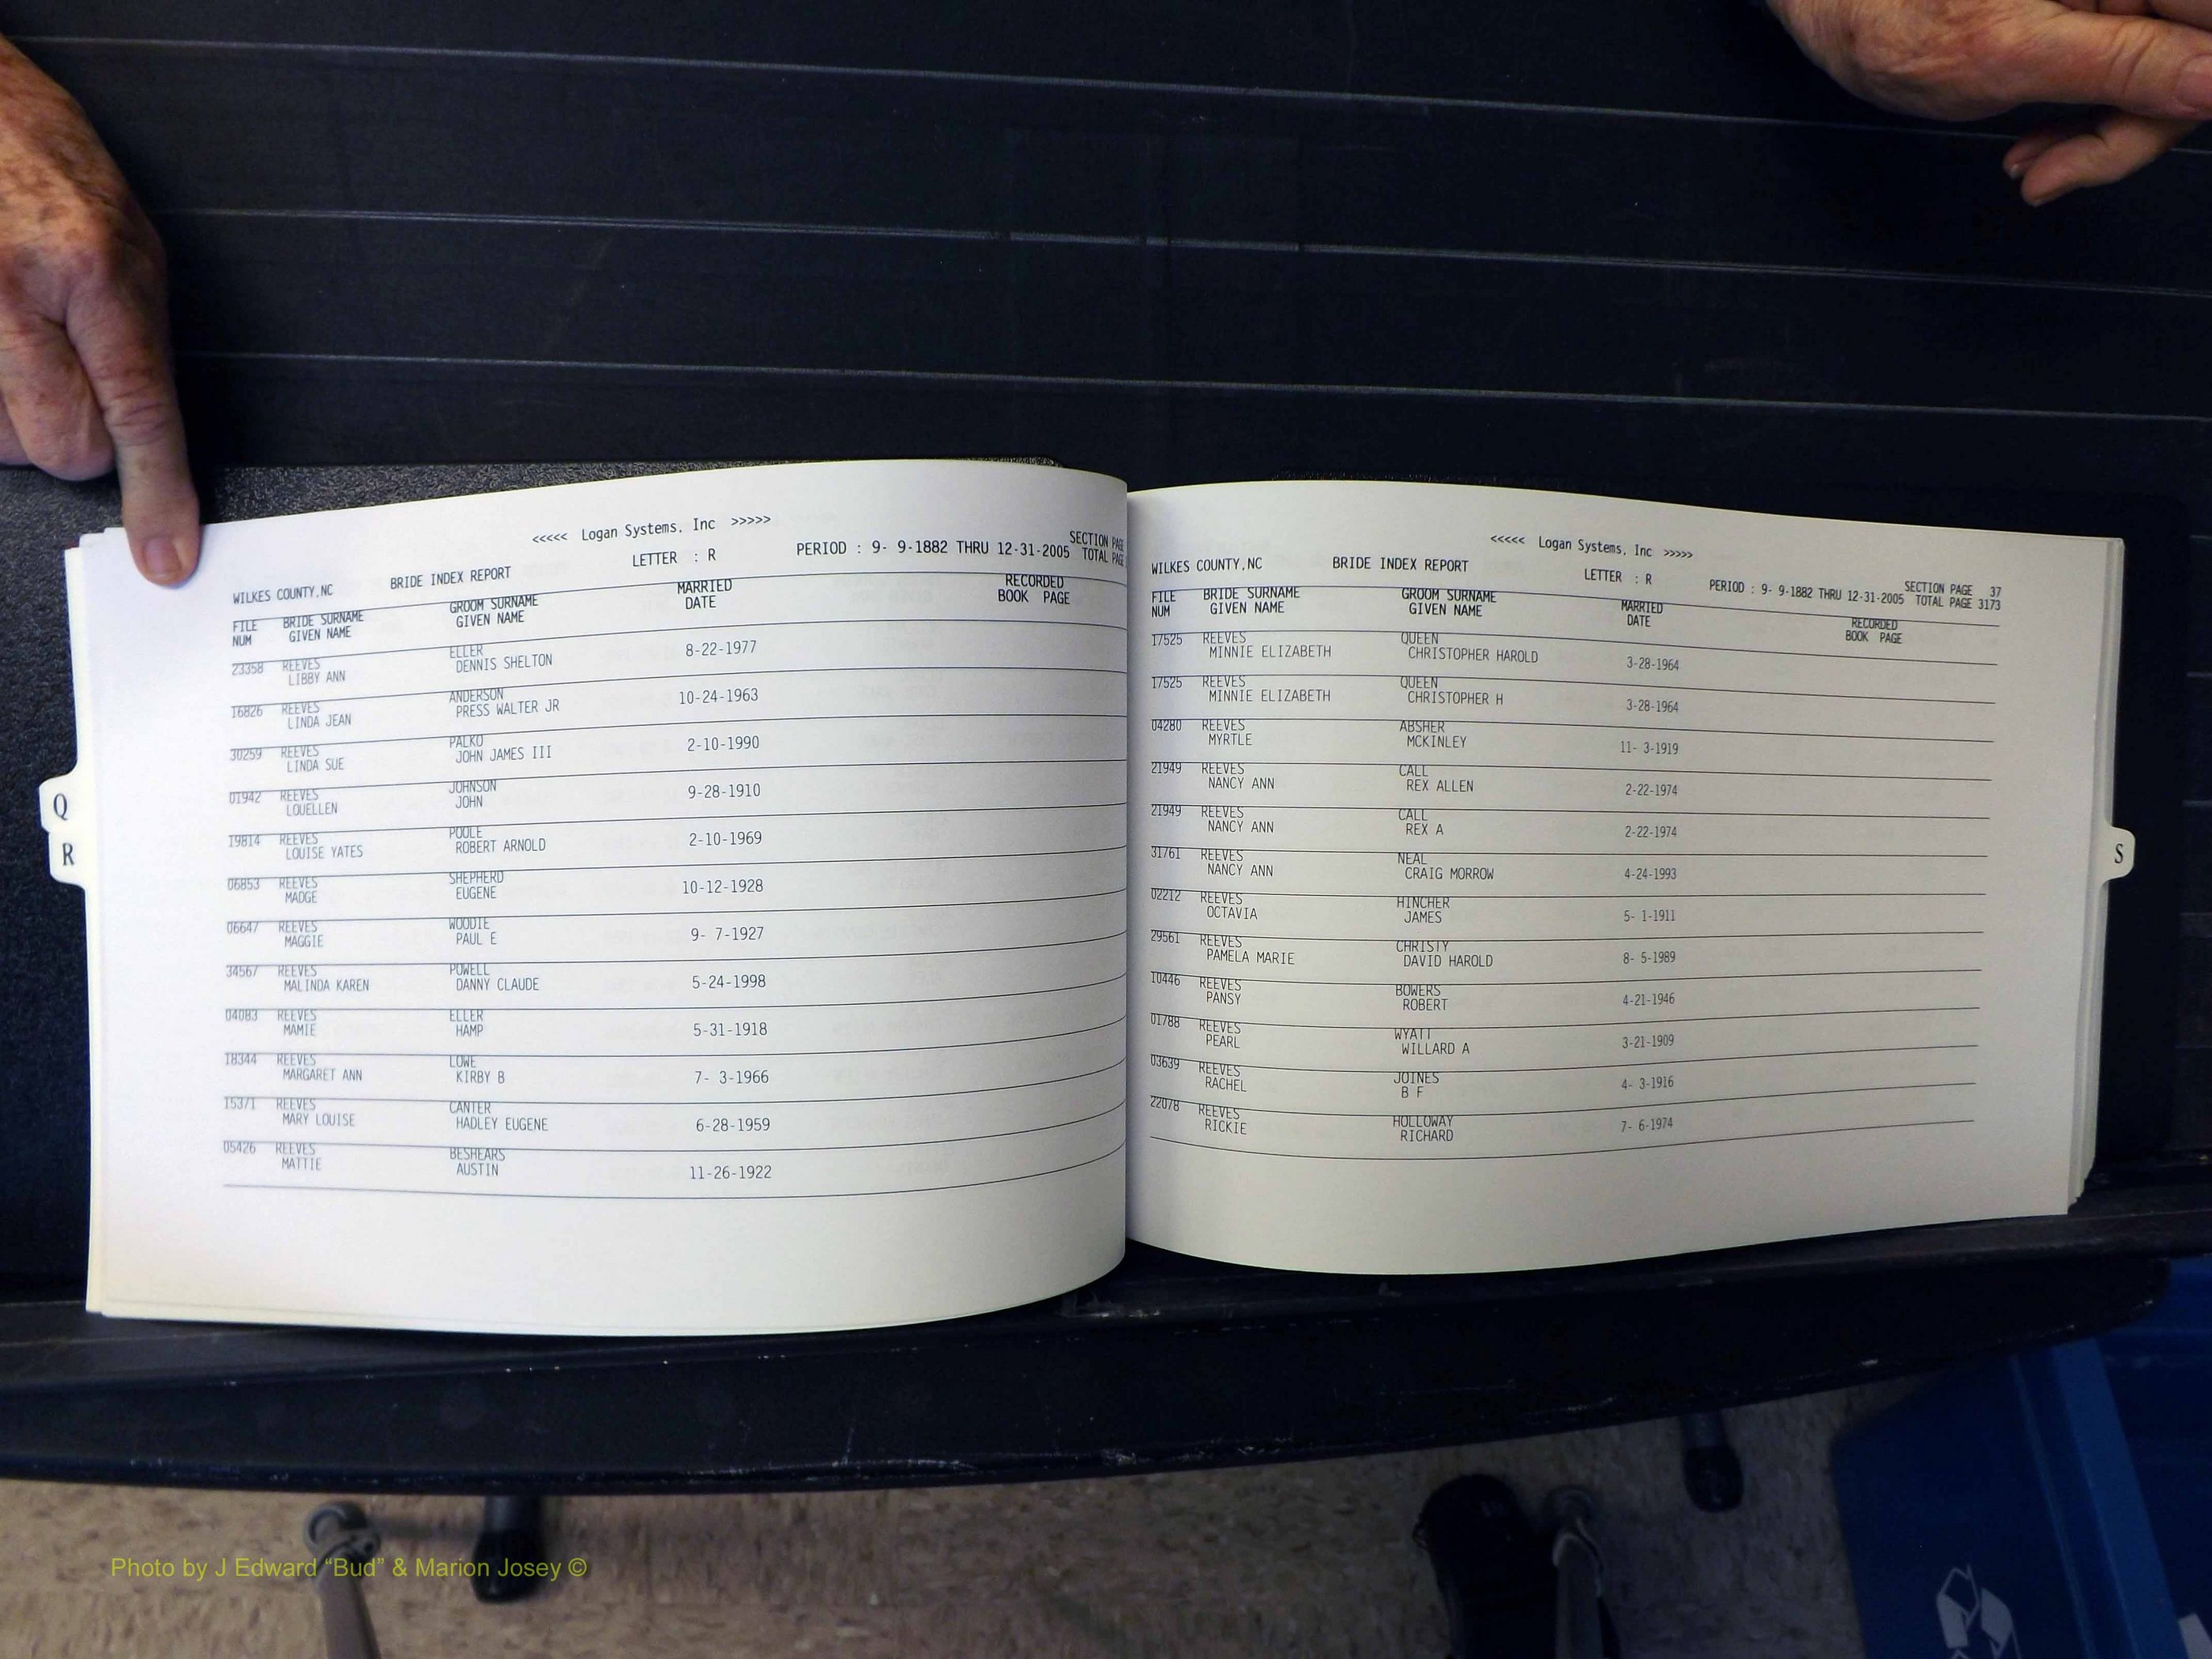 <<<<< Logan Systems, Inc >>>>>
WILKES COUNTY,NC BRIDE INDEX REPORT LETTER : R PERIOD : 9- 9-1882 THRU 12-31-2005 SECTION PAGE
TOTAL PAGE
FILE BRIDE SURNAME GROOM SURNAME MARRIED RECORDED
NUM GIVEN NAME GIVEN NAME DATE BOOK PAGE
23358 REEVES ELLER 8-22-1977
LIBBY ANN DENNIS SHELTON
16826 REEVES ANDERSON 10-24-1963
LINDA JEAN PRESS WALTER JR
30259 REEVES PALKO 2-10-1990
LINDA SUE JOHN JAMES III
01942 REEVES JOHNSON 9-28-1910
LOUELLEN JOHN
19814 REEVES POOLE 2-10-1969
LOUISE YATES ROBERT ARNOLD
06853 REEVES SHEPHERD 10-12-1928
MADGE EUGENE
06647 REEVES WOODIE 9- 7-1927
MAGGIE PAUL E
34567 REEVES POWELL 5-24-1998
MALINDA KAREN DANNY CLAUDE
04083 REEVES ELLER 5-31-1918
MAMIE HAMP
18344 REEVES LOWE 7- 3-1966
MARGARET ANN KIRBY B
15371 REEVES CANTER 6-28-1959
MARY LOUISE HADLEY EUGENE
05426 REEVES BESHEARS 11-26-1922
MATTIE AUSTIN
Q
R
<<<<< Logan Systems, Inc >>>>>
WILKES COUNTY,NC BRIDE INDEX REPORT LETTER : R PERIOD : 9- 9-1882 THRU 12-31-2005 SECTION PAGE 37
TOTAL PAGE 3173
FILE BRIDE SURNAME GROOM SURNAME MARRIED RECORDED
NUM GIVEN NAME GIVEN NAME DATE BOOK PAGE
17525 REEVES QUEEN 3-28-1964
MINNIE ELIZABETH CHRISTOPHER HAROLD
17525 REEVES QUEEN 3-28-1964
MINNIE ELIZABETH CHRISTOPHER H
04280 REEVES ABSHER 11- 3-1919
MYRTLE MCKINLEY
21949 REEVES CALL 2-22-1974
NANCY ANN REX ALLEN
21949 REEVES CALL 2-22-1974
NANCY ANN REX A
31761 REEVES NEAL 4-24-1993
NANCY ANN CRAIG MORROW
02212 REEVES HINCHER 5- 1-1911
OCTAVIA JAMES
29561 REEVES CHRISTY 8- 5-1989
PAMELA MARIE DAVID HAROLD
10446 REEVES BOWERS 4-21-1946
PANSY ROBERT
01788 REEVES WYATT 3-21-1909
PEARL WILLARD A
03639 REEVES JOINES 4- 3-1916
RACHEL B F
22078 REEVES HOLLOWAY 7- 6-1974
RICKIE RICHARD
S
Photo by J Edward “Bud” & Marion Josey ©